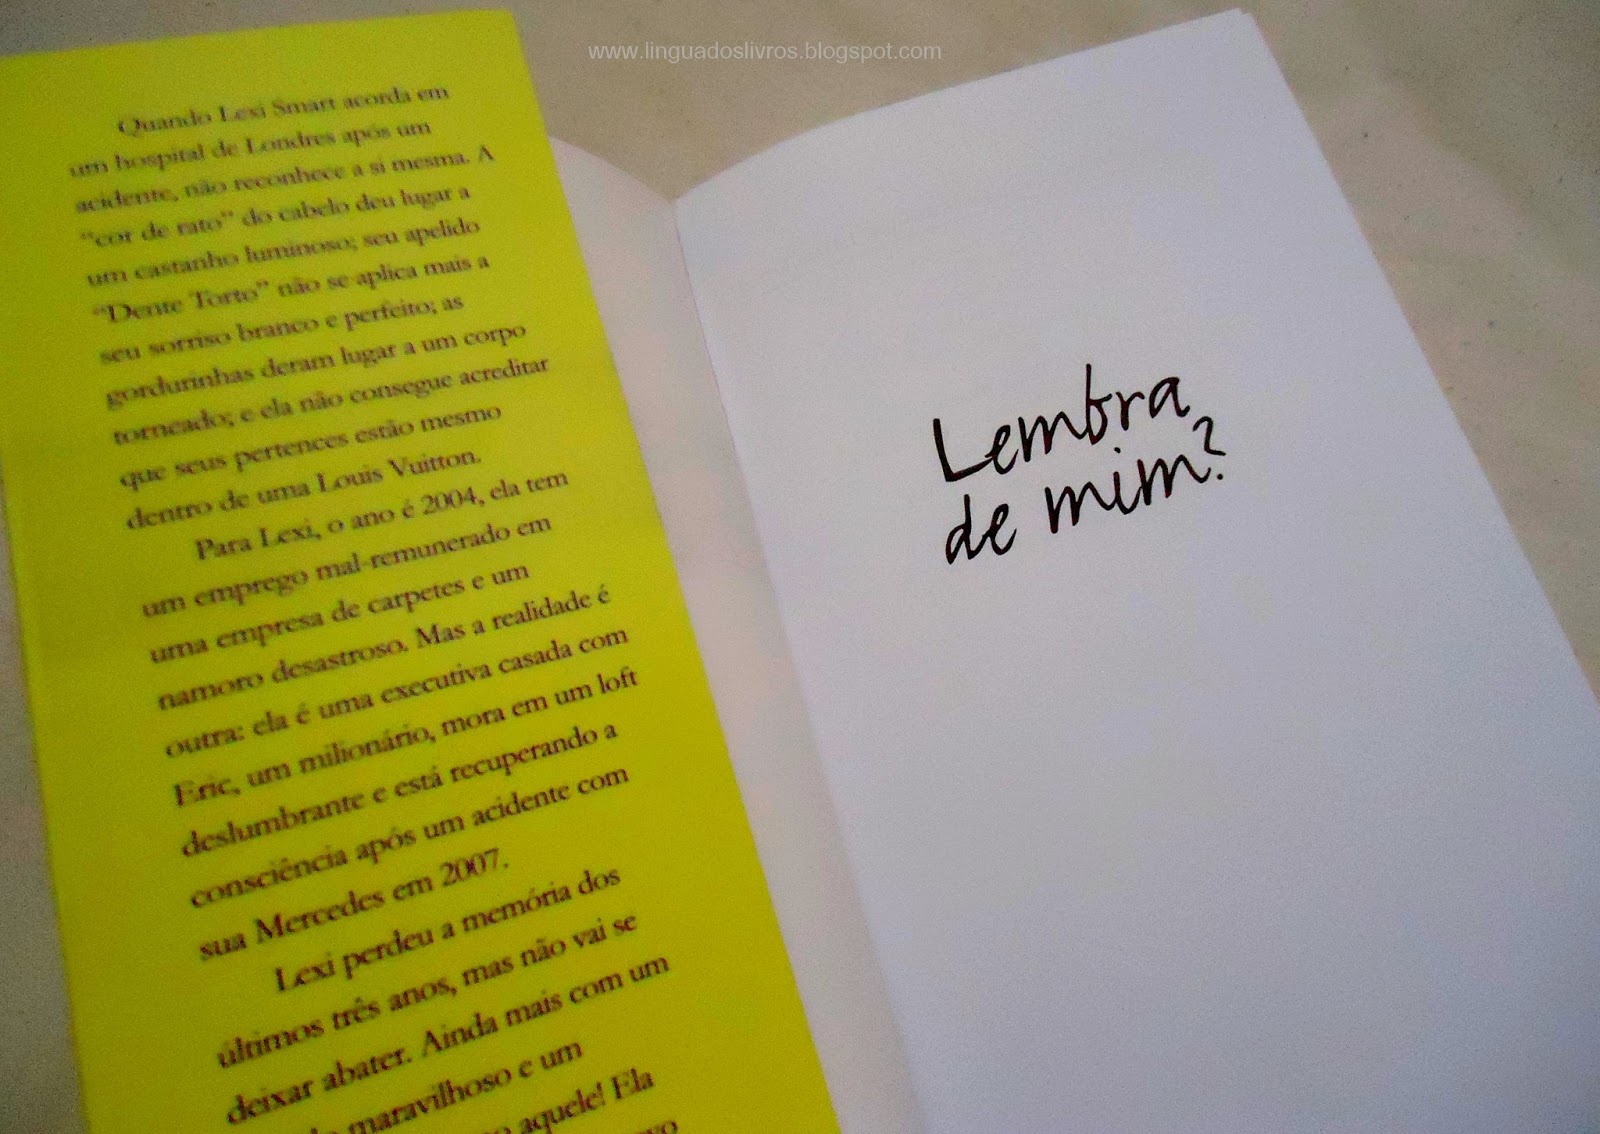 www.linguadoslivros.blogspot.com
Quando Lexi Smart acorda em
um hospital de Londres após um
acidente, não reconhece a si mesma. A
“cor de rato” do cabelo deu lugar a
um castanho luminoso; seu apelido
“Dente Torto” não se aplica mais a
seu sorriso branco e perfeito; as
gordurinhas deram lugar a um corpo
torneado; e ela não consegue acreditar
que seus pertences estão mesmo
dentro de uma Louis Vuitton.
Para Lexi, o ano é 2004, ela tem
um emprego mal-remunerado em
uma empresa de carpetes e um
namoro desastroso. Mas a realidade é
outra: ela é uma executiva casada com
Eric, um milionário, mora em um loft
deslumbrante e está recuperando a
consciência após um acidente com
sua Mercedes em 2007.
Lexi perdeu a memória dos
últimos três anos, mas não vai se
deixar abater. Ainda mais com um
maravilhoso e um
aquele! Ela
Lembra
de mim?